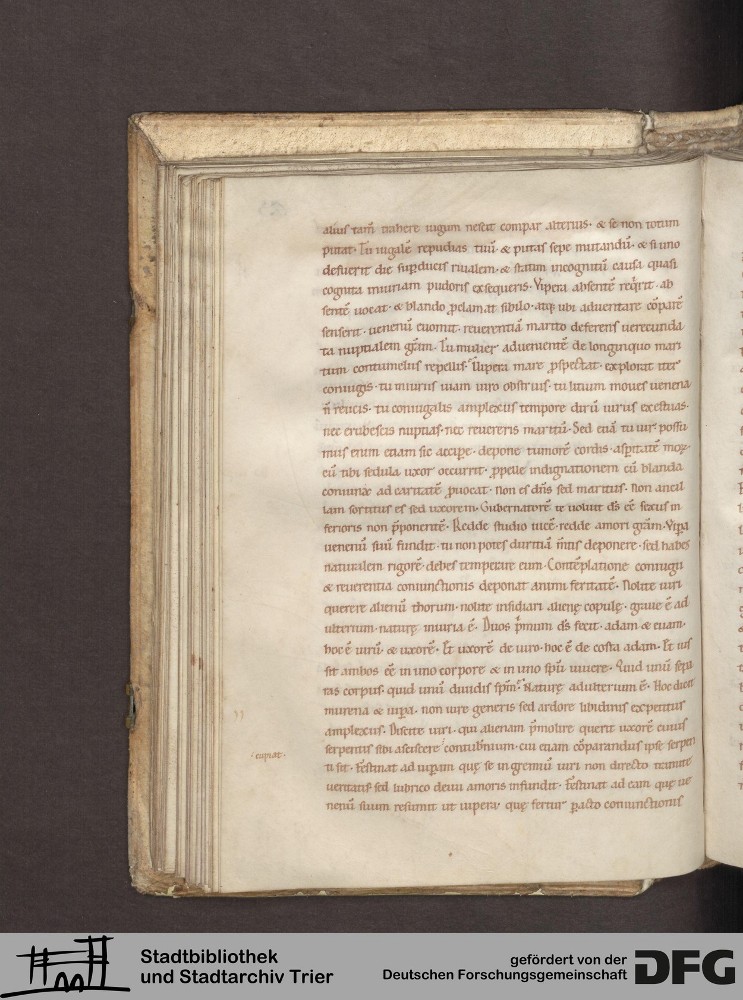 alius tam̄ trahere iugum nescit compar alterius· & se non totum
putat· Tu iugalē repudias tuū· & putas sepe mutandū· & si uno
defuerit die suꝑducis riualem· & statim incognitū causa quasi
cognita iniuriam pudoris exsequeris· Vipera absentē reqͥrit· ab
sentē uocat· & blando ꝓclamat sibilo· atqꝫ ubi aduentare cōparē
senserit· uenenū euomit· reuerentiā marito deferens uerecunda
ta nuptialem gr̄am· Tu mulier aduenientē de longinquo mari
tum contumeliis repellis· Vipera mare ꝓspectat· explorat iter
coniugis· tu iniuriis uiam uiro obstruis· tu litium moues uenena
n̄ reicis· tu coniugalis amplexus tempore dirū uirus exestuas·
nec erubescis nuptias· nec reuereris maritū· Sed etiā tu uir possu
mus enim etiam sic accipe· depone tumorē cordis· asꝑitatē morꝫ·
cū tibi sedula uxor occurrit· ꝓpelle indignationem cū blanda
coniunx ad caritatē ꝓuocat· non es dn̄s sed maritus· Non ancil
lam sortitus es sed uxorem· Gubernatorē te uoluit ds̄ eē sexus in
ferioris non p̄potentē· Redde studio uicē· redde amori gr̄am· Viꝑa
uenenū suū fundit· tu non potes duritiā m̄tis deponere· sed habes
naturalem rigorē· debes temperare eum· Contēplatione coniugii
& reuerentia coniunctionis deponat animi feritatē· Nolite uiri
querere alienū thorum· nolite insidiari alienę copulę· graue ē ad
ulterium· naturę iniuria ē· Duos pͥmum ds̄ fecit· adam & euam·
hoc ē uirū & uxorē· Et uxorē de uiro· hoc ē de costa adam· Et ius
sit ambos eē in uno corpore & in uno sp̄u uiuere· Quid unū sepa
ras corpus· quid unū diuidis sp̄m· Naturę adulterium ē· Hoc docet
murena & uiꝑa· non iure generis sed ardore libidinis expetitus
amplexus· Discite uiri· qui alienam pͥmolire querit uxorē cuius
serpentis sibi asciscere contubnium· cui etiam cōparandus ipse serpen
ti sit· Festinat ad uiꝑam quę se in gremiū uiri non directo tramite
ueritatis sed lubrico deuii amoris infundit· Festinat ad eam quę ue
nenū suum resumit ut uipera· quę fertur ꝑacto coniunctionis
· cupiat·
Stadtbibliothek
und Stadtarchiv Trier
gefördert von der
Deutschen Forschungsgemeinschaft
DFG